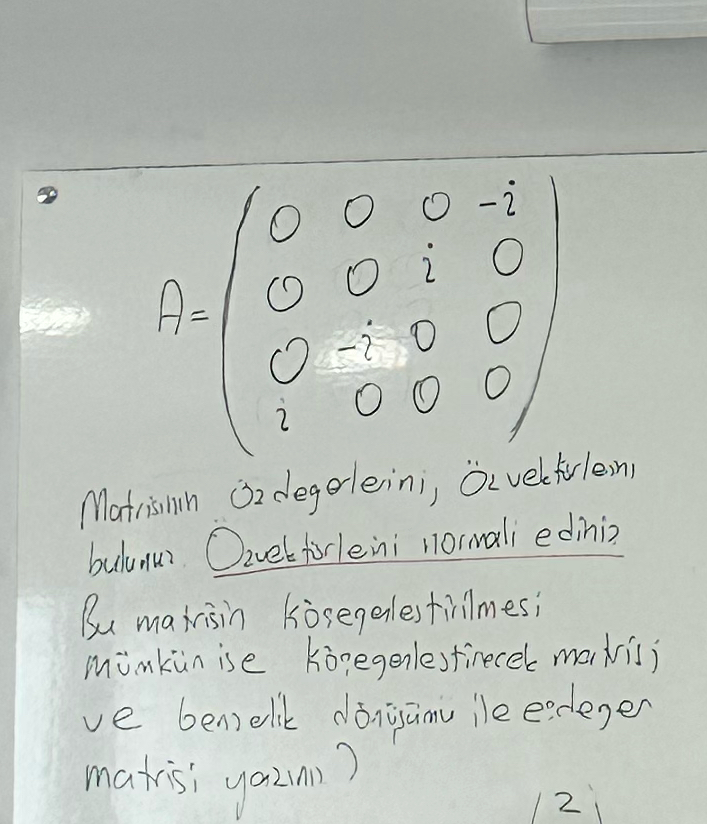 A = ( 0 0 0 -i
0 0 i 0
0 -i 0 0
i 0 0 0 )
Matrisinin Özdegerlerini, Özvektörlerini
bulunuz. Özvektörlerini normali ediniz
Bu matrisin köşegenleştirilmesi
mümkün ise köşegenleştirecek matrisi
ve benzerlik dönüşümü ile eşdeger
matrisi yazınız?
/ 2 i